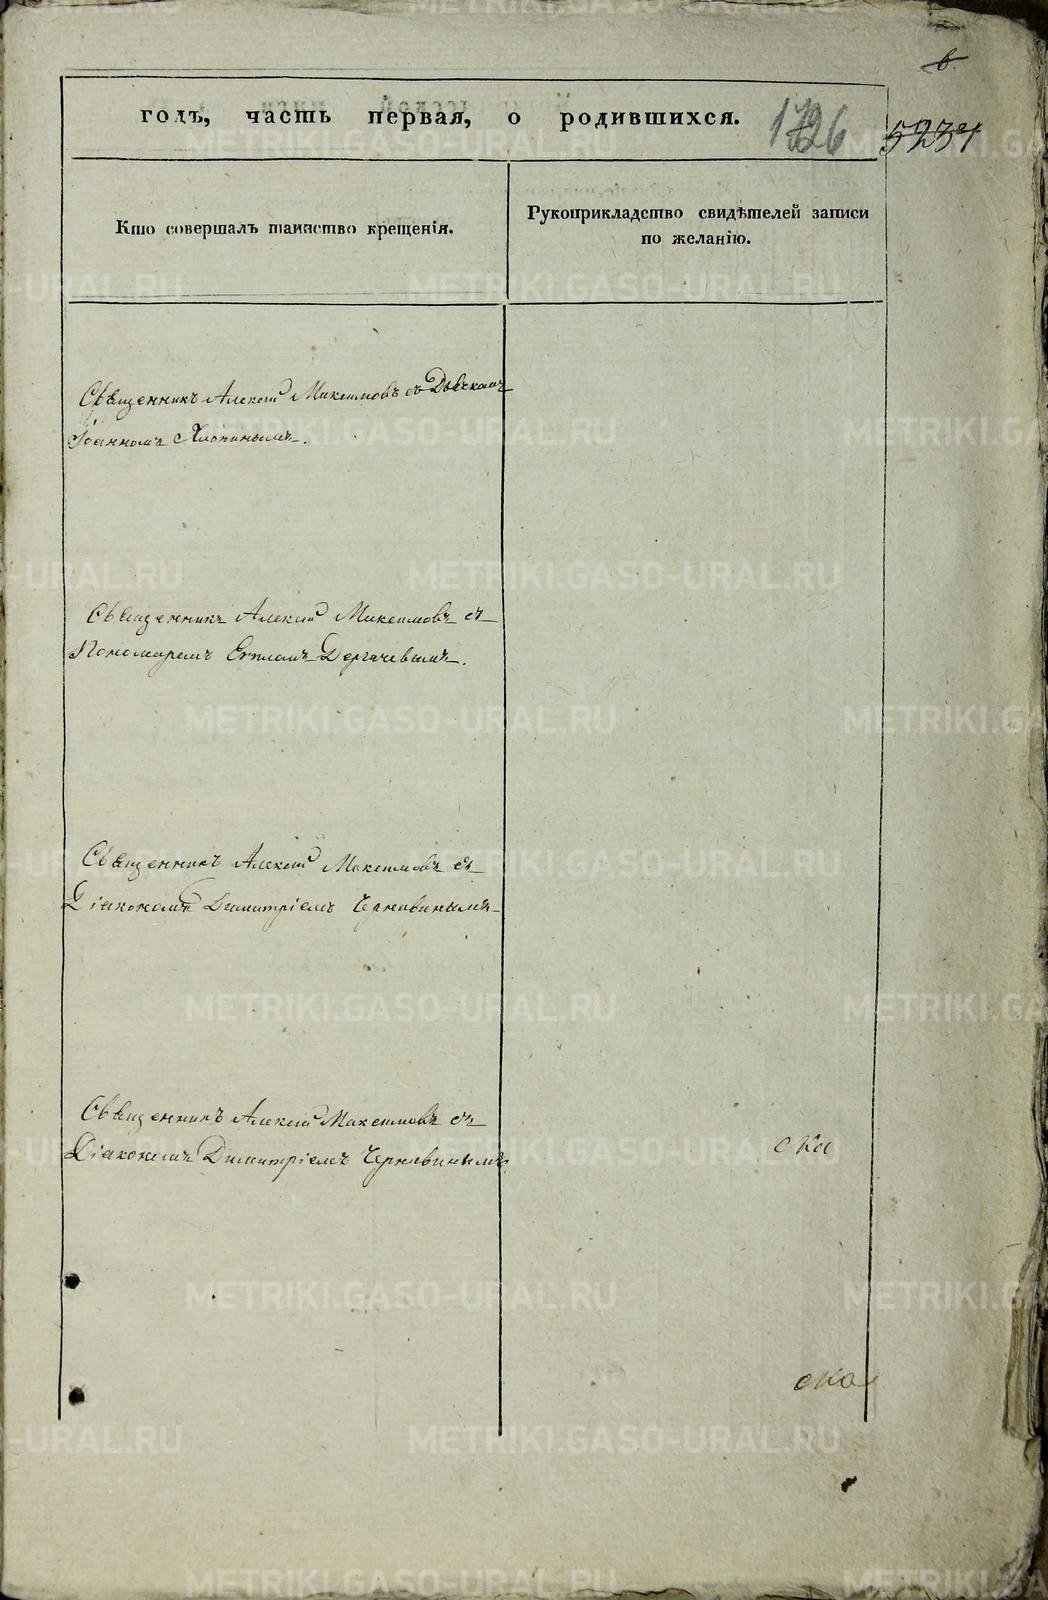 годъ, часть первая, о родившихся.
5234
Кто совершалъ таинство крещенія.
Рукоприкладство свидѣтелей записи
по желанію.
Священникъ Алексій Максимовъ съ Дьячкомъ
Іоанномъ
Священникъ Алексій Максимовъ съ
Пономаремъ Евпломъ Дергачевымъ.
Священникъ Алексій Максимовъ съ
Діакономъ Димитріемъ Чернавинымъ
Священникъ Алексій Максимовъ съ
Діакономъ Димитріемъ Чернавинымъ
ска
ска
METRIKI.GASO-URAL.RU